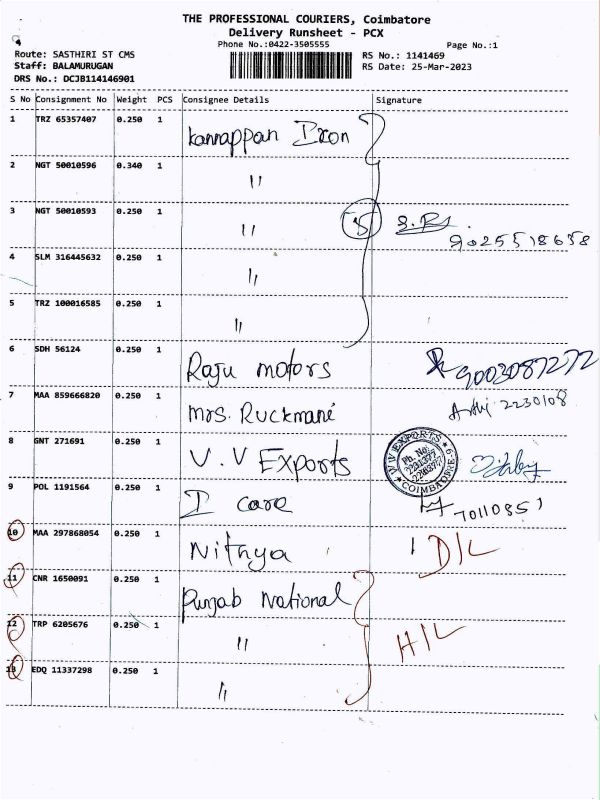 THE PROFESSIONAL COURIERS, Coimbatore
Delivery Runsheet - PCX
Phone No.:0422-3505555
Page No.:1
Route: SASTHIRI ST CMS
RS No.: 1141469
Staff: BALAMURUGAN
RS Date: 25-Mar-2023
DRS No.: DCJB114146901
S No Consignment No Weight PCS Consignee Details Signature
1 TRZ 65357407 0.250 1 Kannappan Iron
2 NGT 50010596 0.340 1 "
3 NGT 50010593 0.250 1 " 5 S.R
9025518658
4 SLM 316445632 0.250 1 "
5 TRZ 100016585 0.250 1 "
6 SDH 56124 0.250 1 Raju motors 9003087272
7 MAA 859666820 0.250 1 Mrs. Ruckmani 2230108
8 GNT 271691 0.250 1 V.V Exports
V.V EXPORTS
Ph. No:
COIMBATORE-9
9 POL 1191564 0.250 1 I care
10 MAA 297868054 0.250 1 Nithya D/L
11 CNR 1650091 0.250 1 Punjab National
12 TRP 6205676 0.250 1 " H/L
13 EDQ 11337298 0.250 1 "